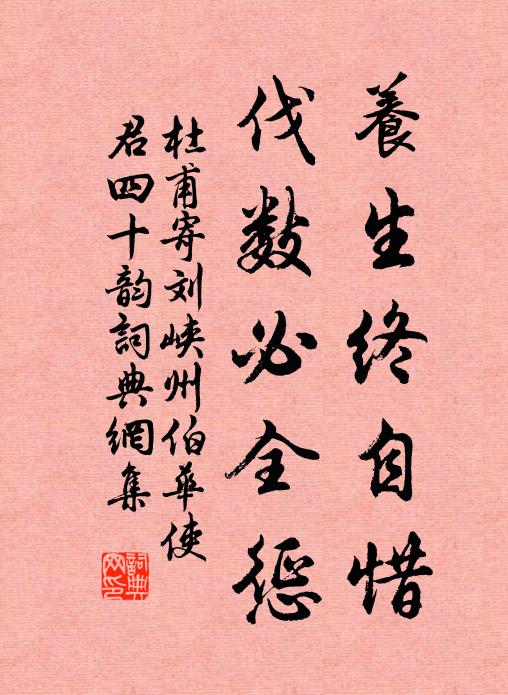 養生終自惜
伐数必全惩
杜甫寄刘峡州伯華使
君四十韵詞典網集
詞典
网印